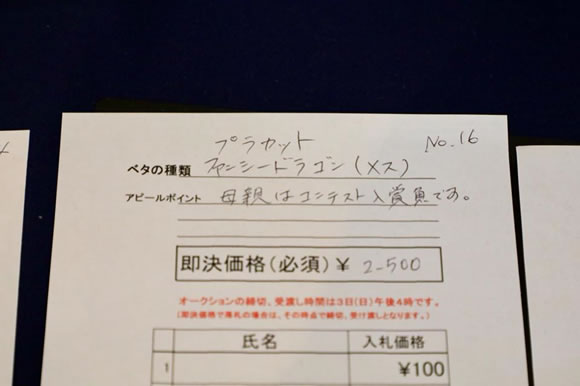 プラカット
No.16
ベタの種類 ファンシードラゴン(メス)
アピールポイント 母親はコンテスト入賞魚です。
即決価格(必須)¥ 2-500
オークションの締切、受渡し時間は3日(日)午後4時です。
(即決価格で落札の場合は、その時点で締切、受け渡しとなります。)
氏名 入札価格
1 ¥100